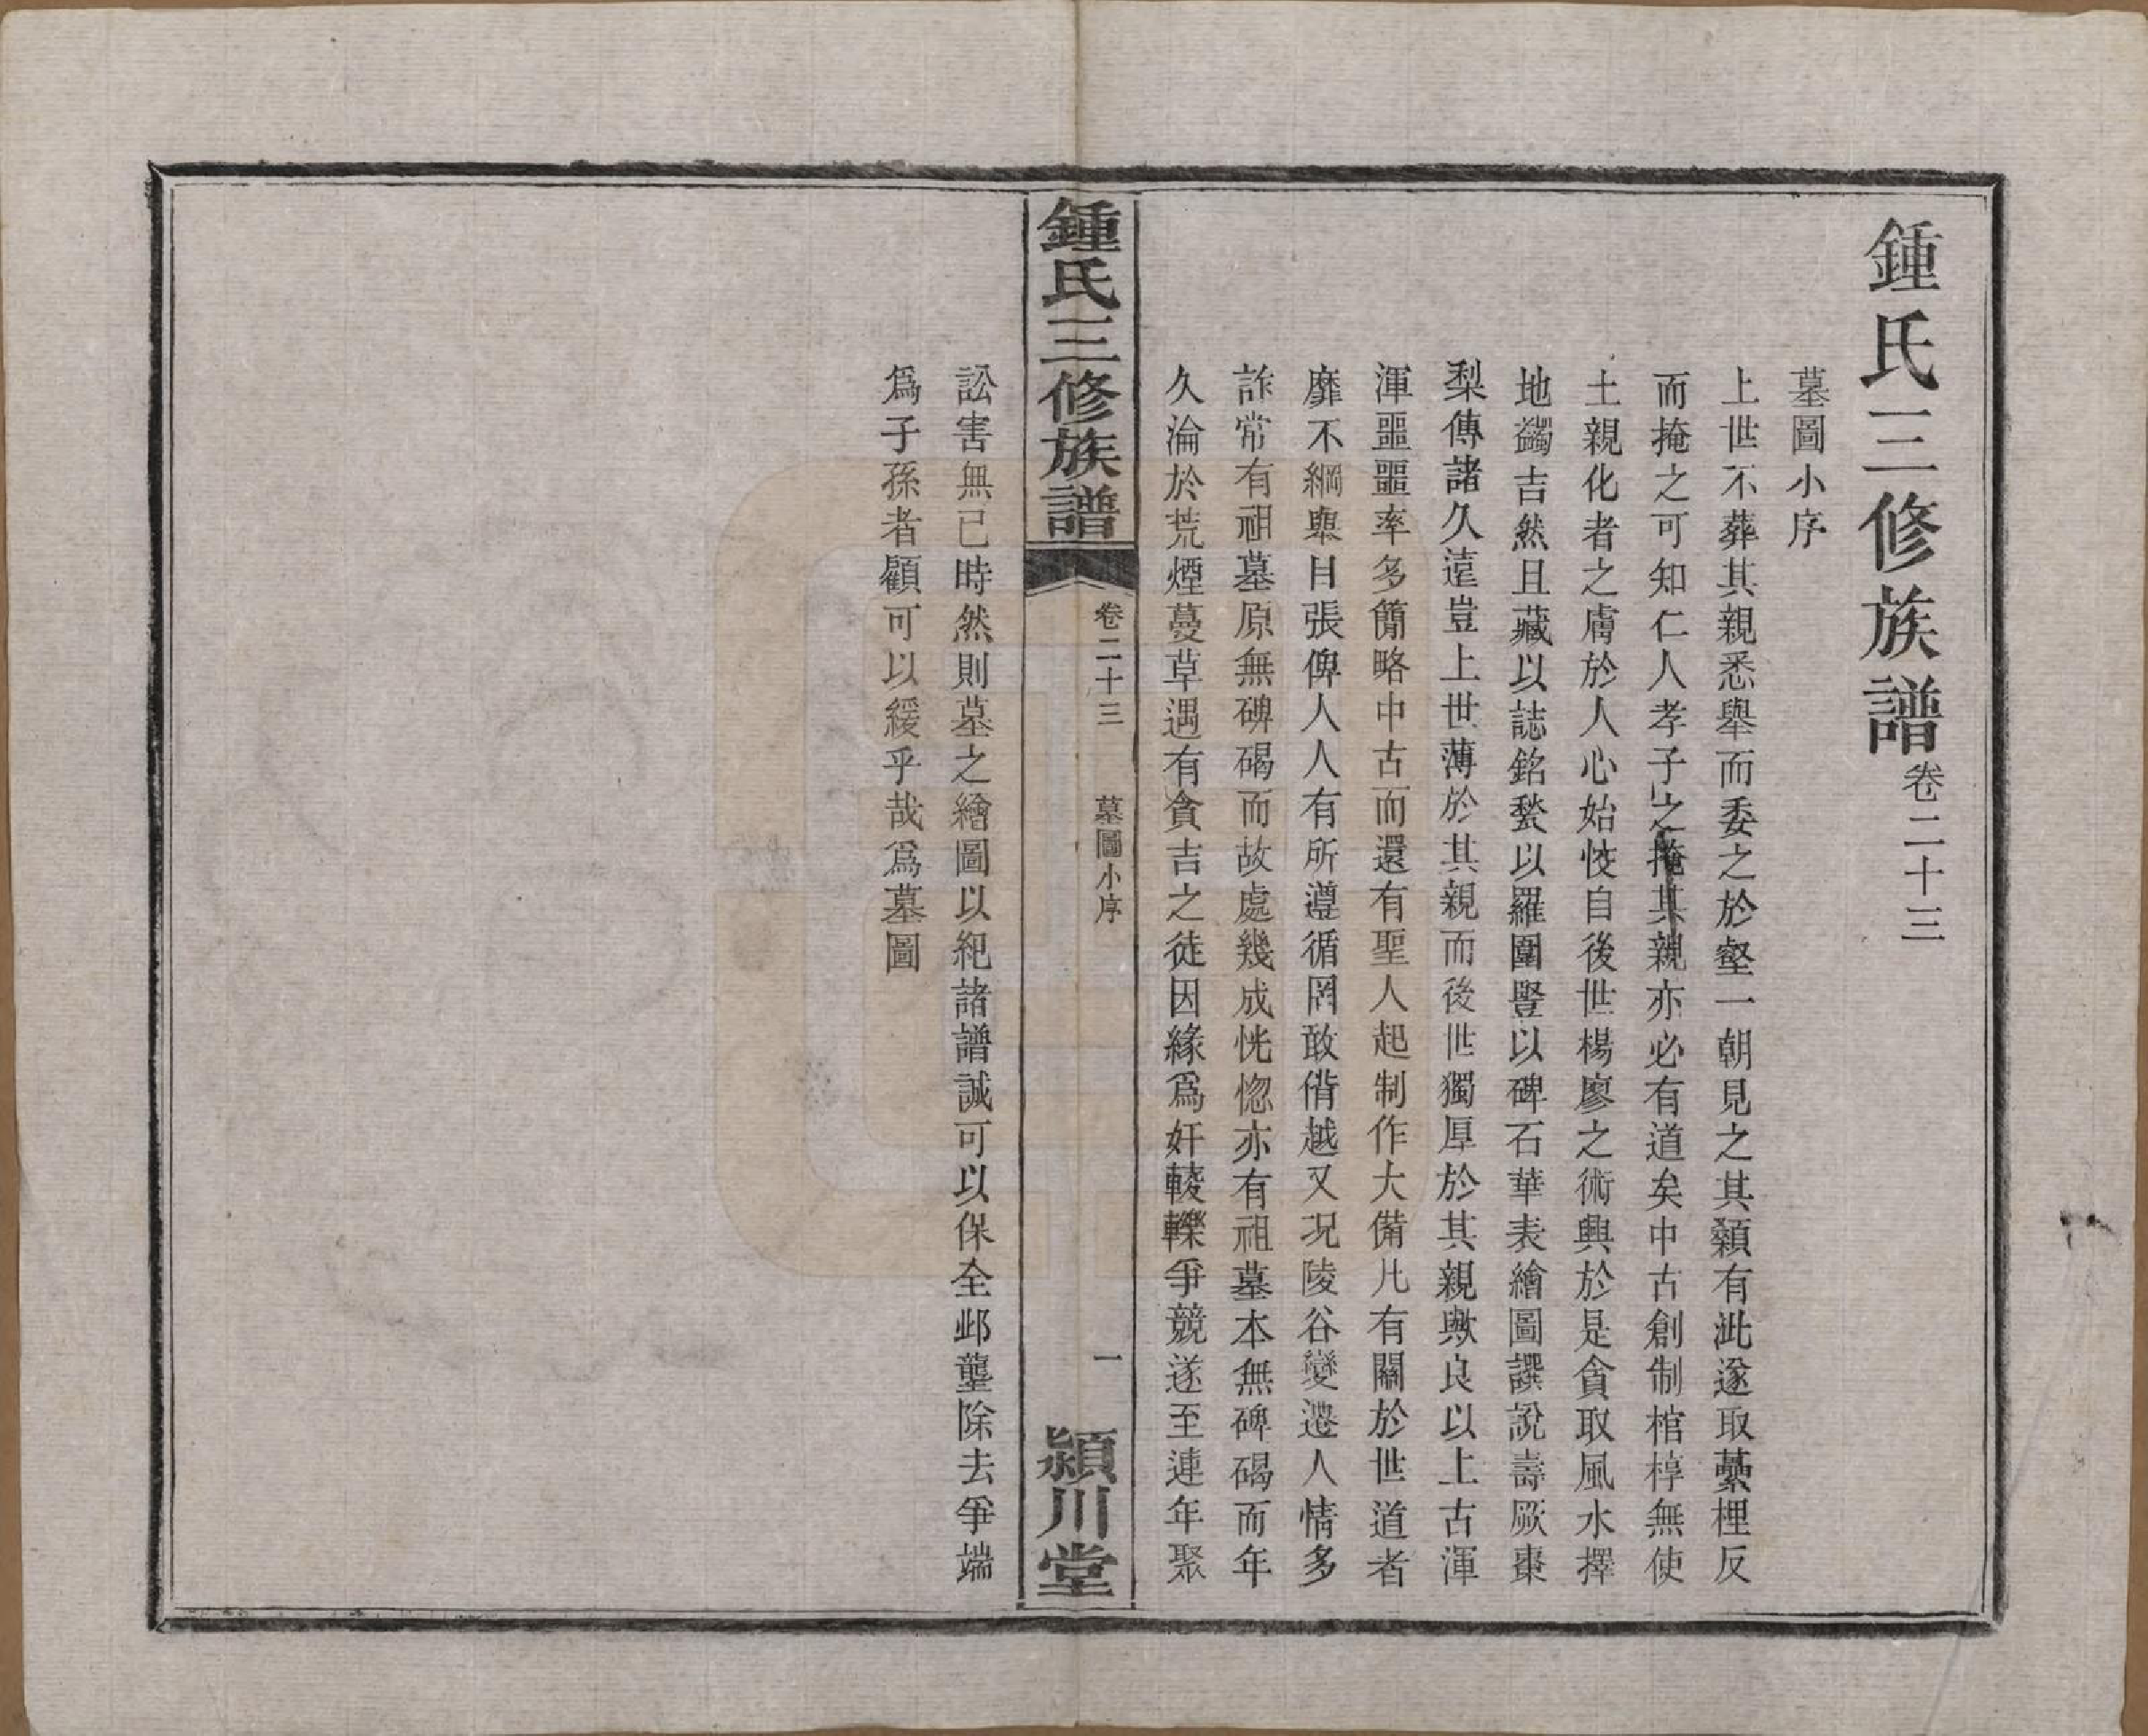 鍾氏三修族譜卷二十三
墓圖小序
上世不葬其親悉舉而委之於壑一朝見之其顙有泚遂取虆梩反
而掩之可知仁人孝子之掩其親亦必有道矣中古創制棺椁無使
土親化者之膚於人心始恔自後世楊廖之術興於是貪取風水擇
地蠲吉然且藏以誌銘甃以羅圍豎以碑石華表繪圖譔說壽厥棗
梨傳諸久遠豈上世薄於其親而後世獨厚於其親歟良以上古渾
渾噩噩率多簡略中古而還有聖人起制作大備凡有關於世道者
靡不綱舉目張俾人人有所遵循罔敢僭越又况陵谷變遷人情多
詐常有祖墓原無碑碣而故處幾成恍惚亦有祖墓本無碑碣而年
久淪於荒煙蔓草遇有貪吉之徒因緣爲奸輘轢爭競遂至連年聚
鍾氏三修族譜 卷二十三 墓圖小序 一 潁川堂
訟害無已時然則墓之繪圖以紀諸譜誠可以保全邱壟除去爭端
爲子孫者顧可以緩乎哉爲墓圖